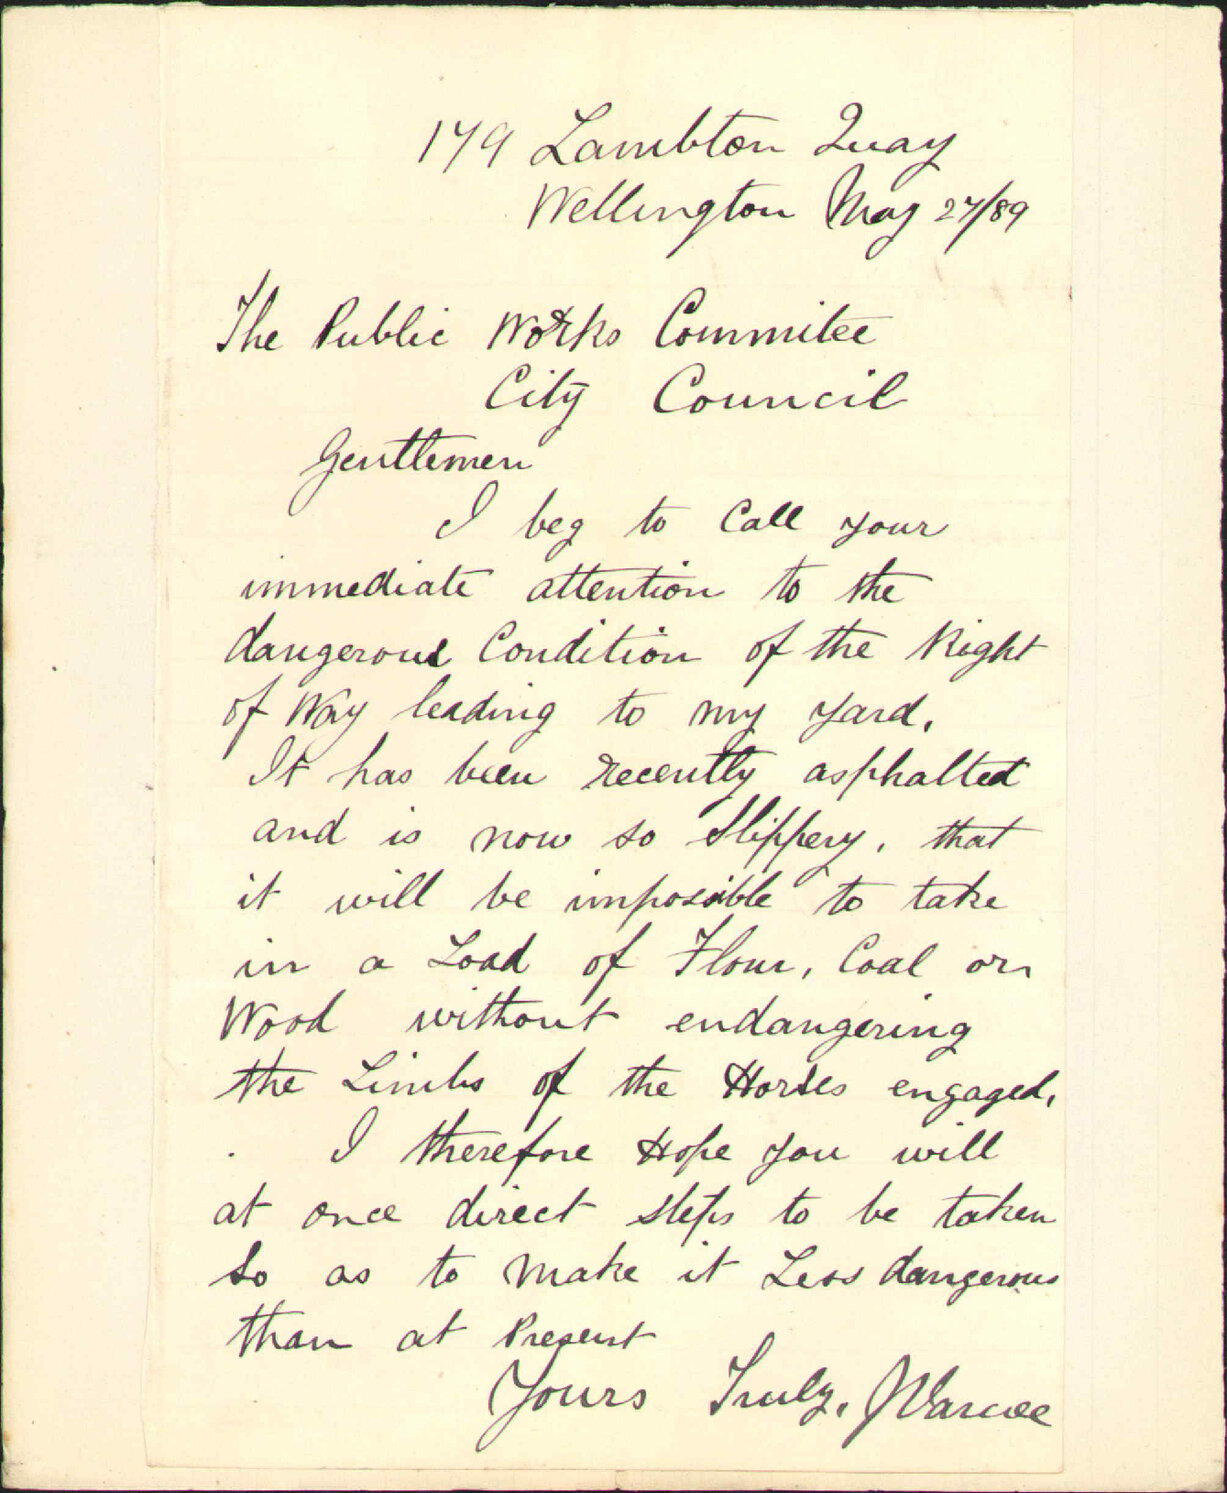 179 Lambton Quay
Wellington May 27/89
The Public Works Commitee
City Council
Gentlemen
I beg to Call your
immediate attention to the
dangerous Condition of the Right
of Way leading to my yard.
It has been recently asphalted
and is now so slippery, that
it will be imposible to take
in a Load of Flour, Coal or
Wood without endangering
the Limbs of the Horses engaged.
I therefore Hope you will
at once direct steps to be taken
so as to make it Less dangerous
than at Present
Yours Truly,